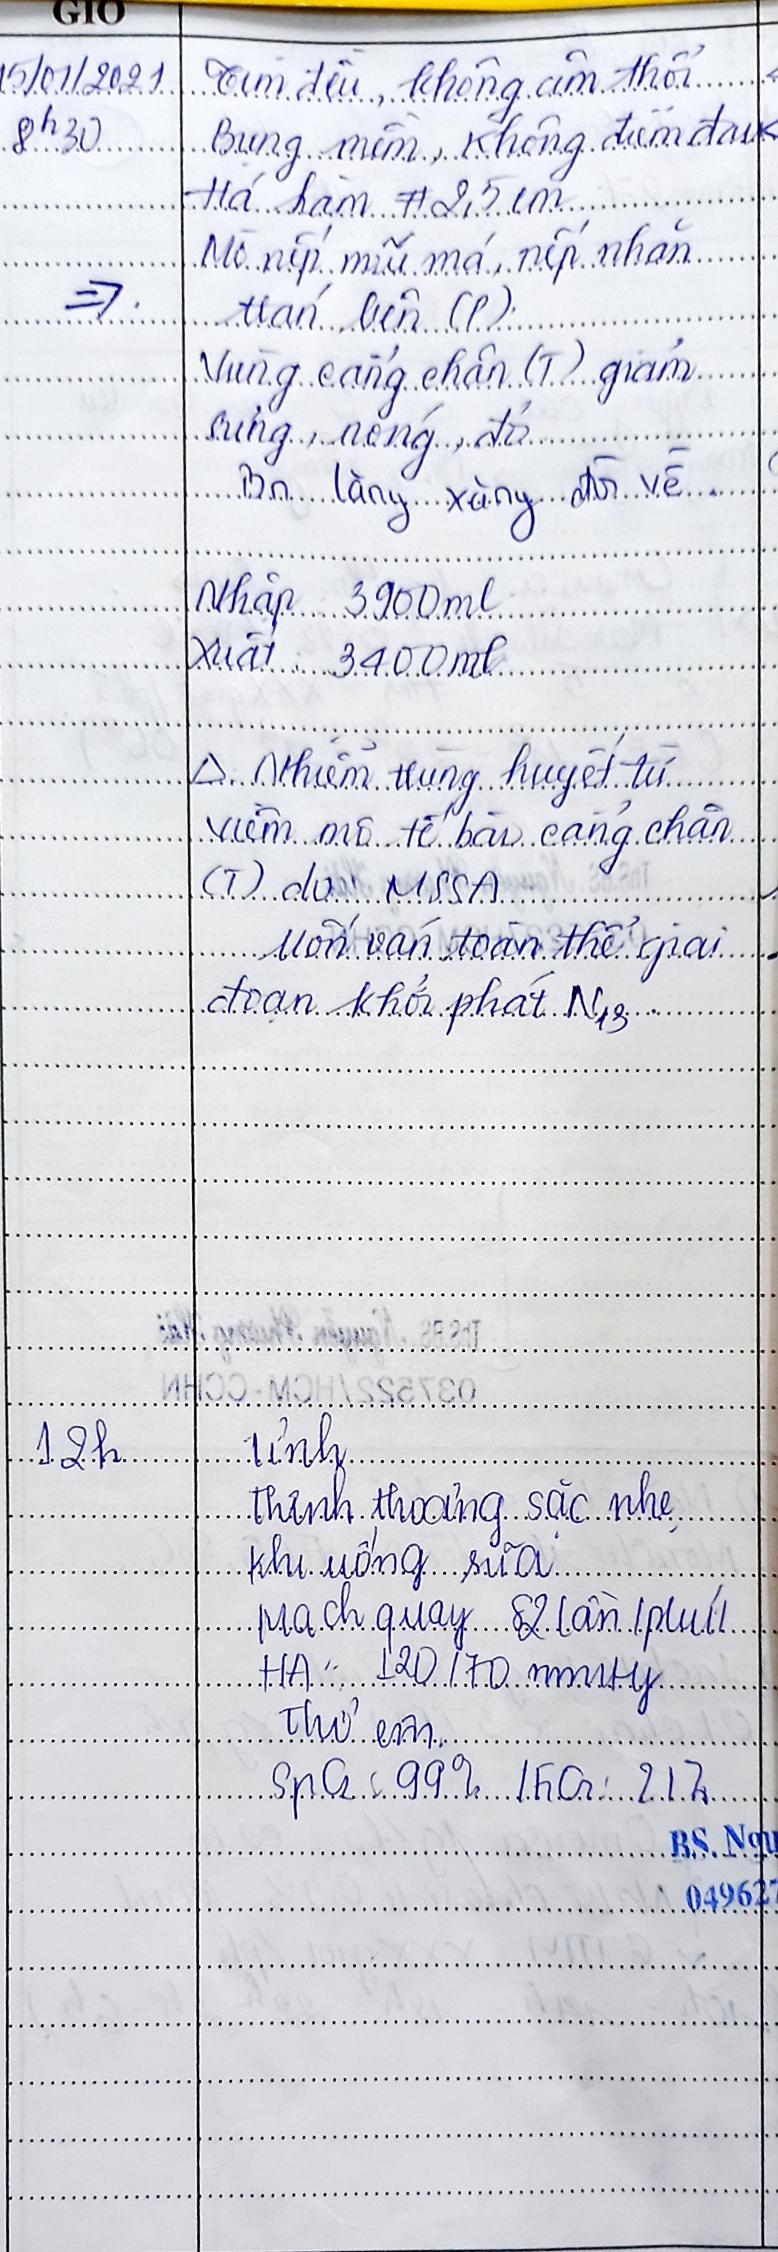 GIỜ
15/01/2021
8h30
Tim đều, không âm thổi
Bụng mềm, không điểm đau
Há hàm # 2,5 cm
Mờ nếp mũi má, nếp nhăn
=>. trán bên (P)
Vùng cẳng chân (T) giảm
sưng, nóng, đỏ
Bn lằng xằng đòi về.
Nhập 3900ml
Xuất 3400ml
Δ. Nhiễm trùng huyết từ
viêm mô tế bào cẳng chân
(T) do MSSA
Uốn ván toàn thể giai
đoạn khởi phát N13.
ThS.BS. Nguyễn Phương Hải
037522/HCM-CCHN
12h Tỉnh
thỉnh thoảng sặc nhẹ
khi uống sữa
Mạch quay 82 lần/phút
HA: 120/70 mmHg
Thở êm.
SpO2: 99% /FiO2: 21%
BS. Ngu
049627